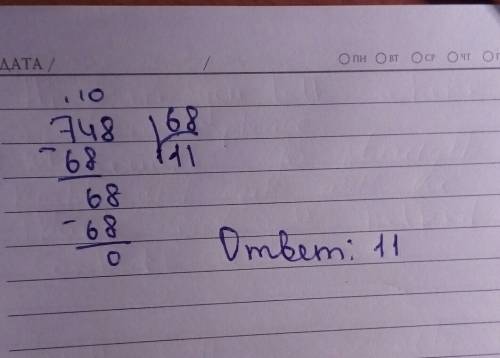 ДАТА / / ПН ВТ СР ЧТ
.10
748 68
-68 11
68
-68
0
Ответ: 11